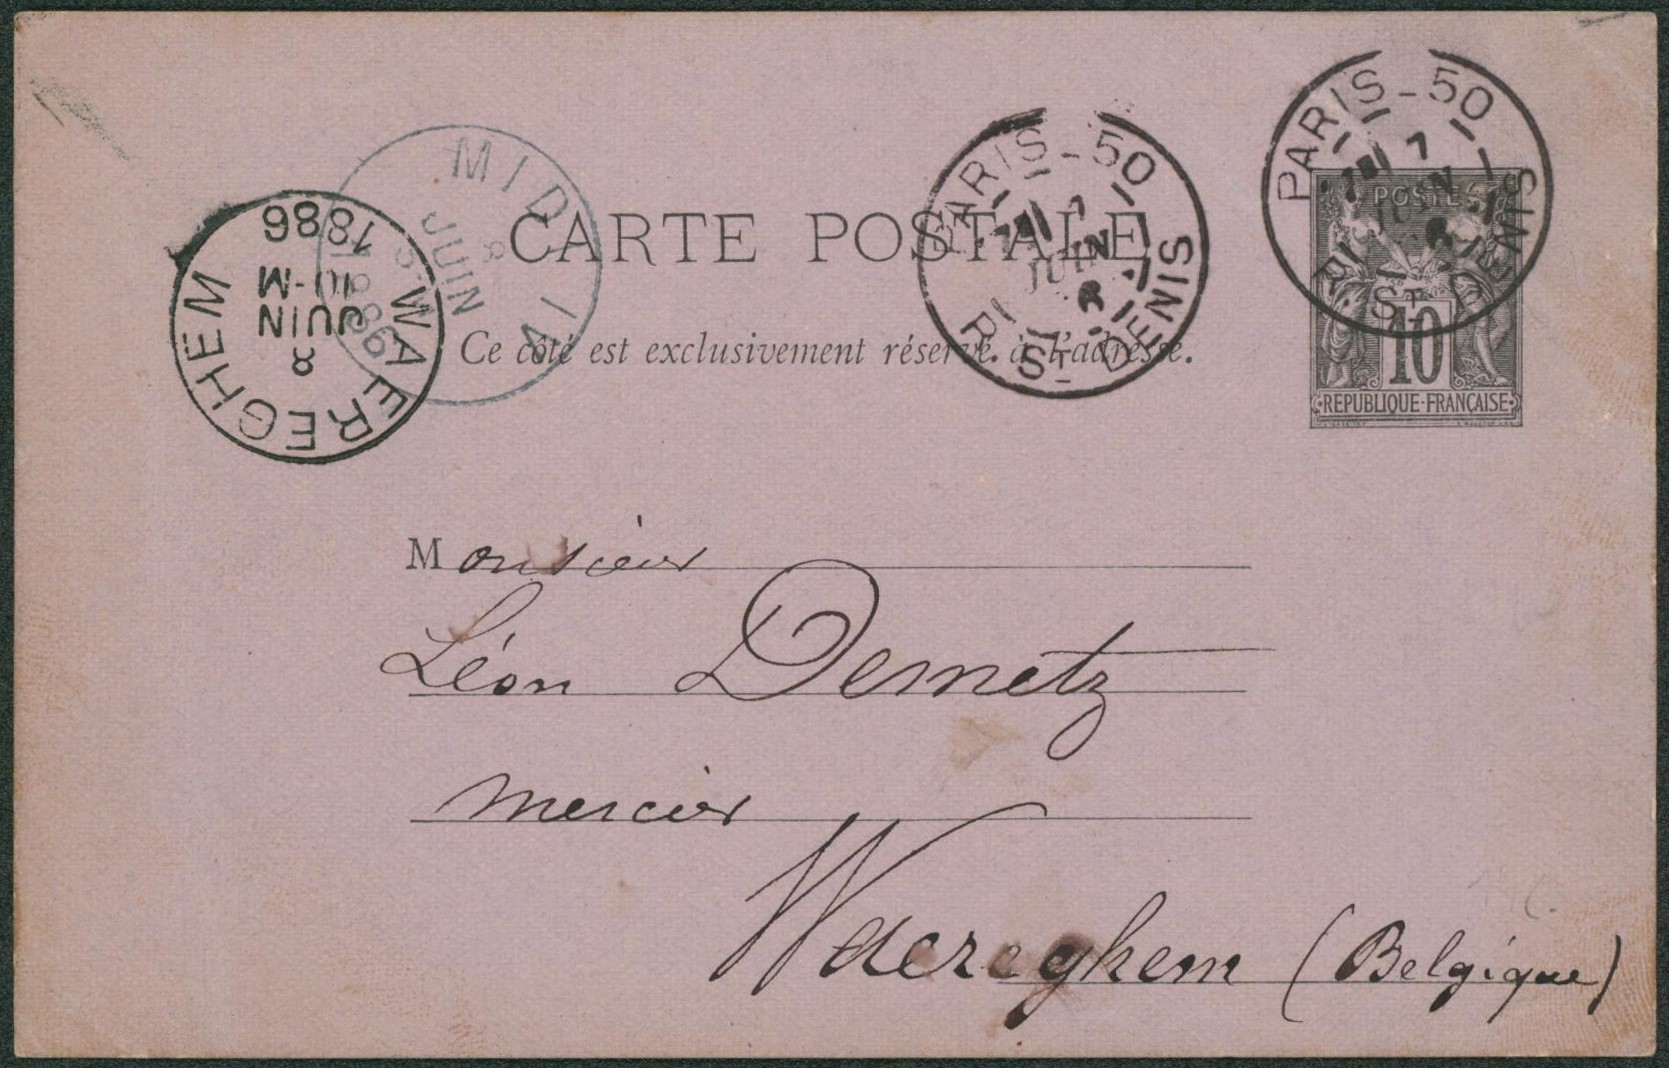 PARIS - 50
7
JUIN
R. ST DENIS
PARIS - 50
7
R. ST DENIS
POSTES
10
REPUBLIQUE·FRANÇAISE
MIDI
8
JUIN
1886
WAEREGHEM
8
JUIN
10-M
1886
CARTE POSTALE
Ce côté est exclusivement réservé à l'adresse.
Monsieur
Léon Demetz
mercier
Waereghem (Belgique)